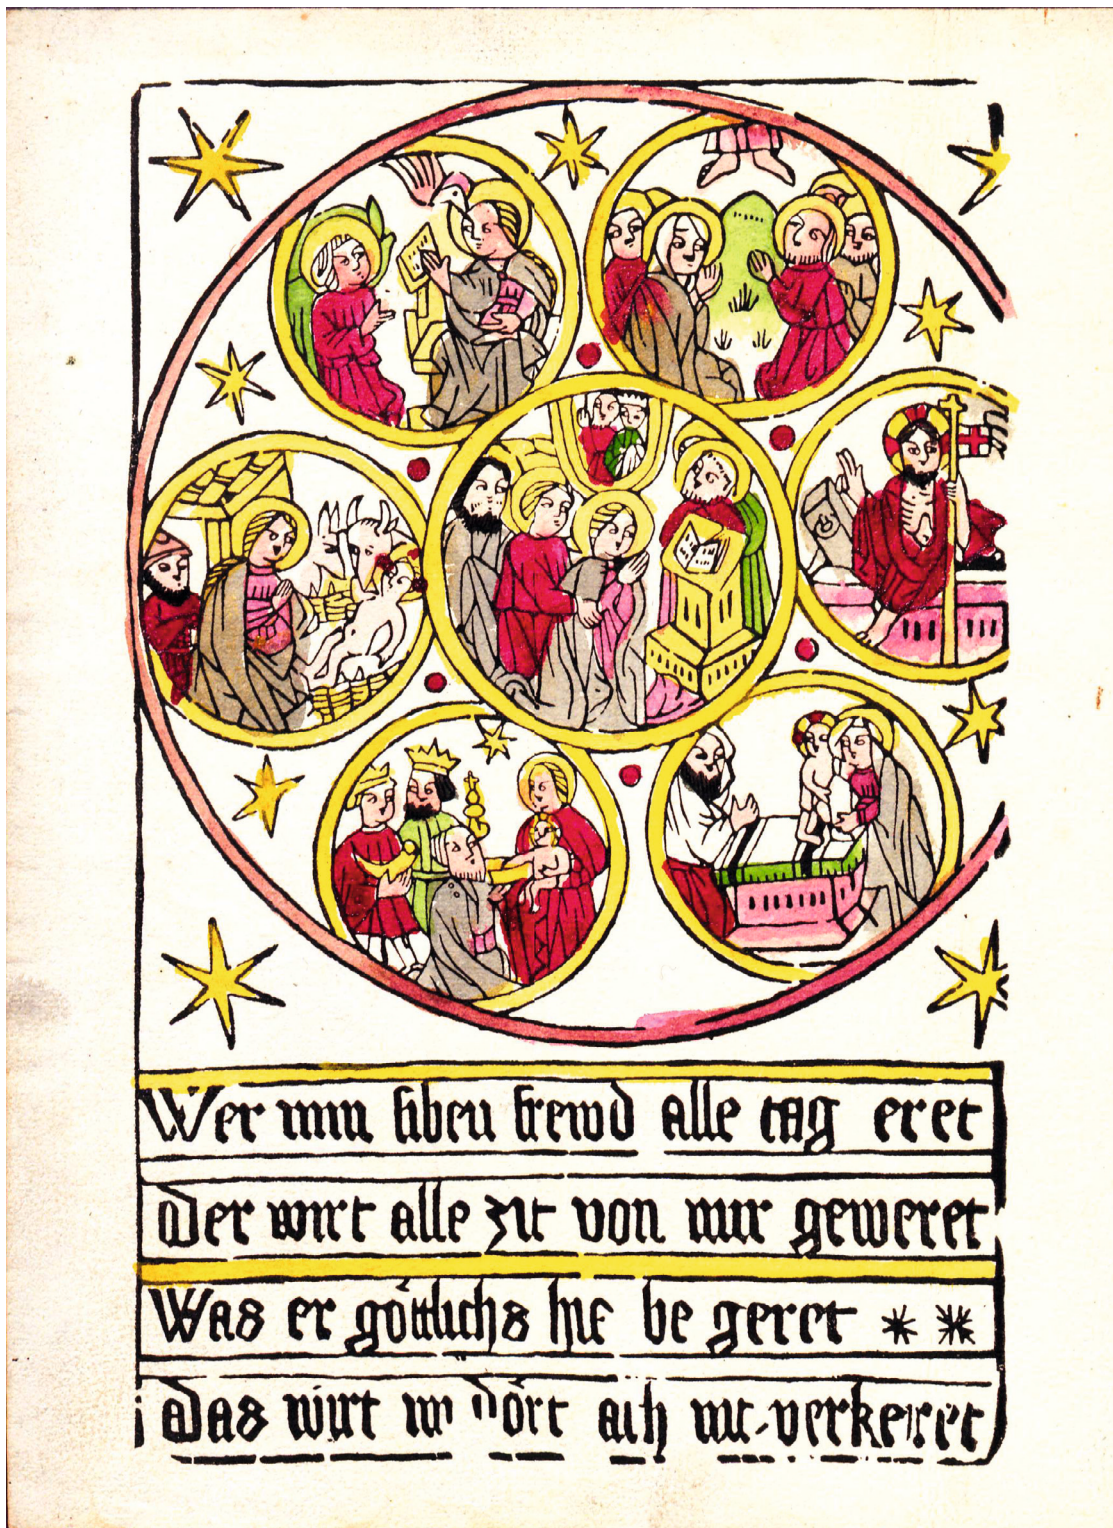 Wer min siben frewd alle tag eret
Der wirt alle zit von mir geweret
Was er göttlichs hie be geret
Das wirt im dört nit verkeret